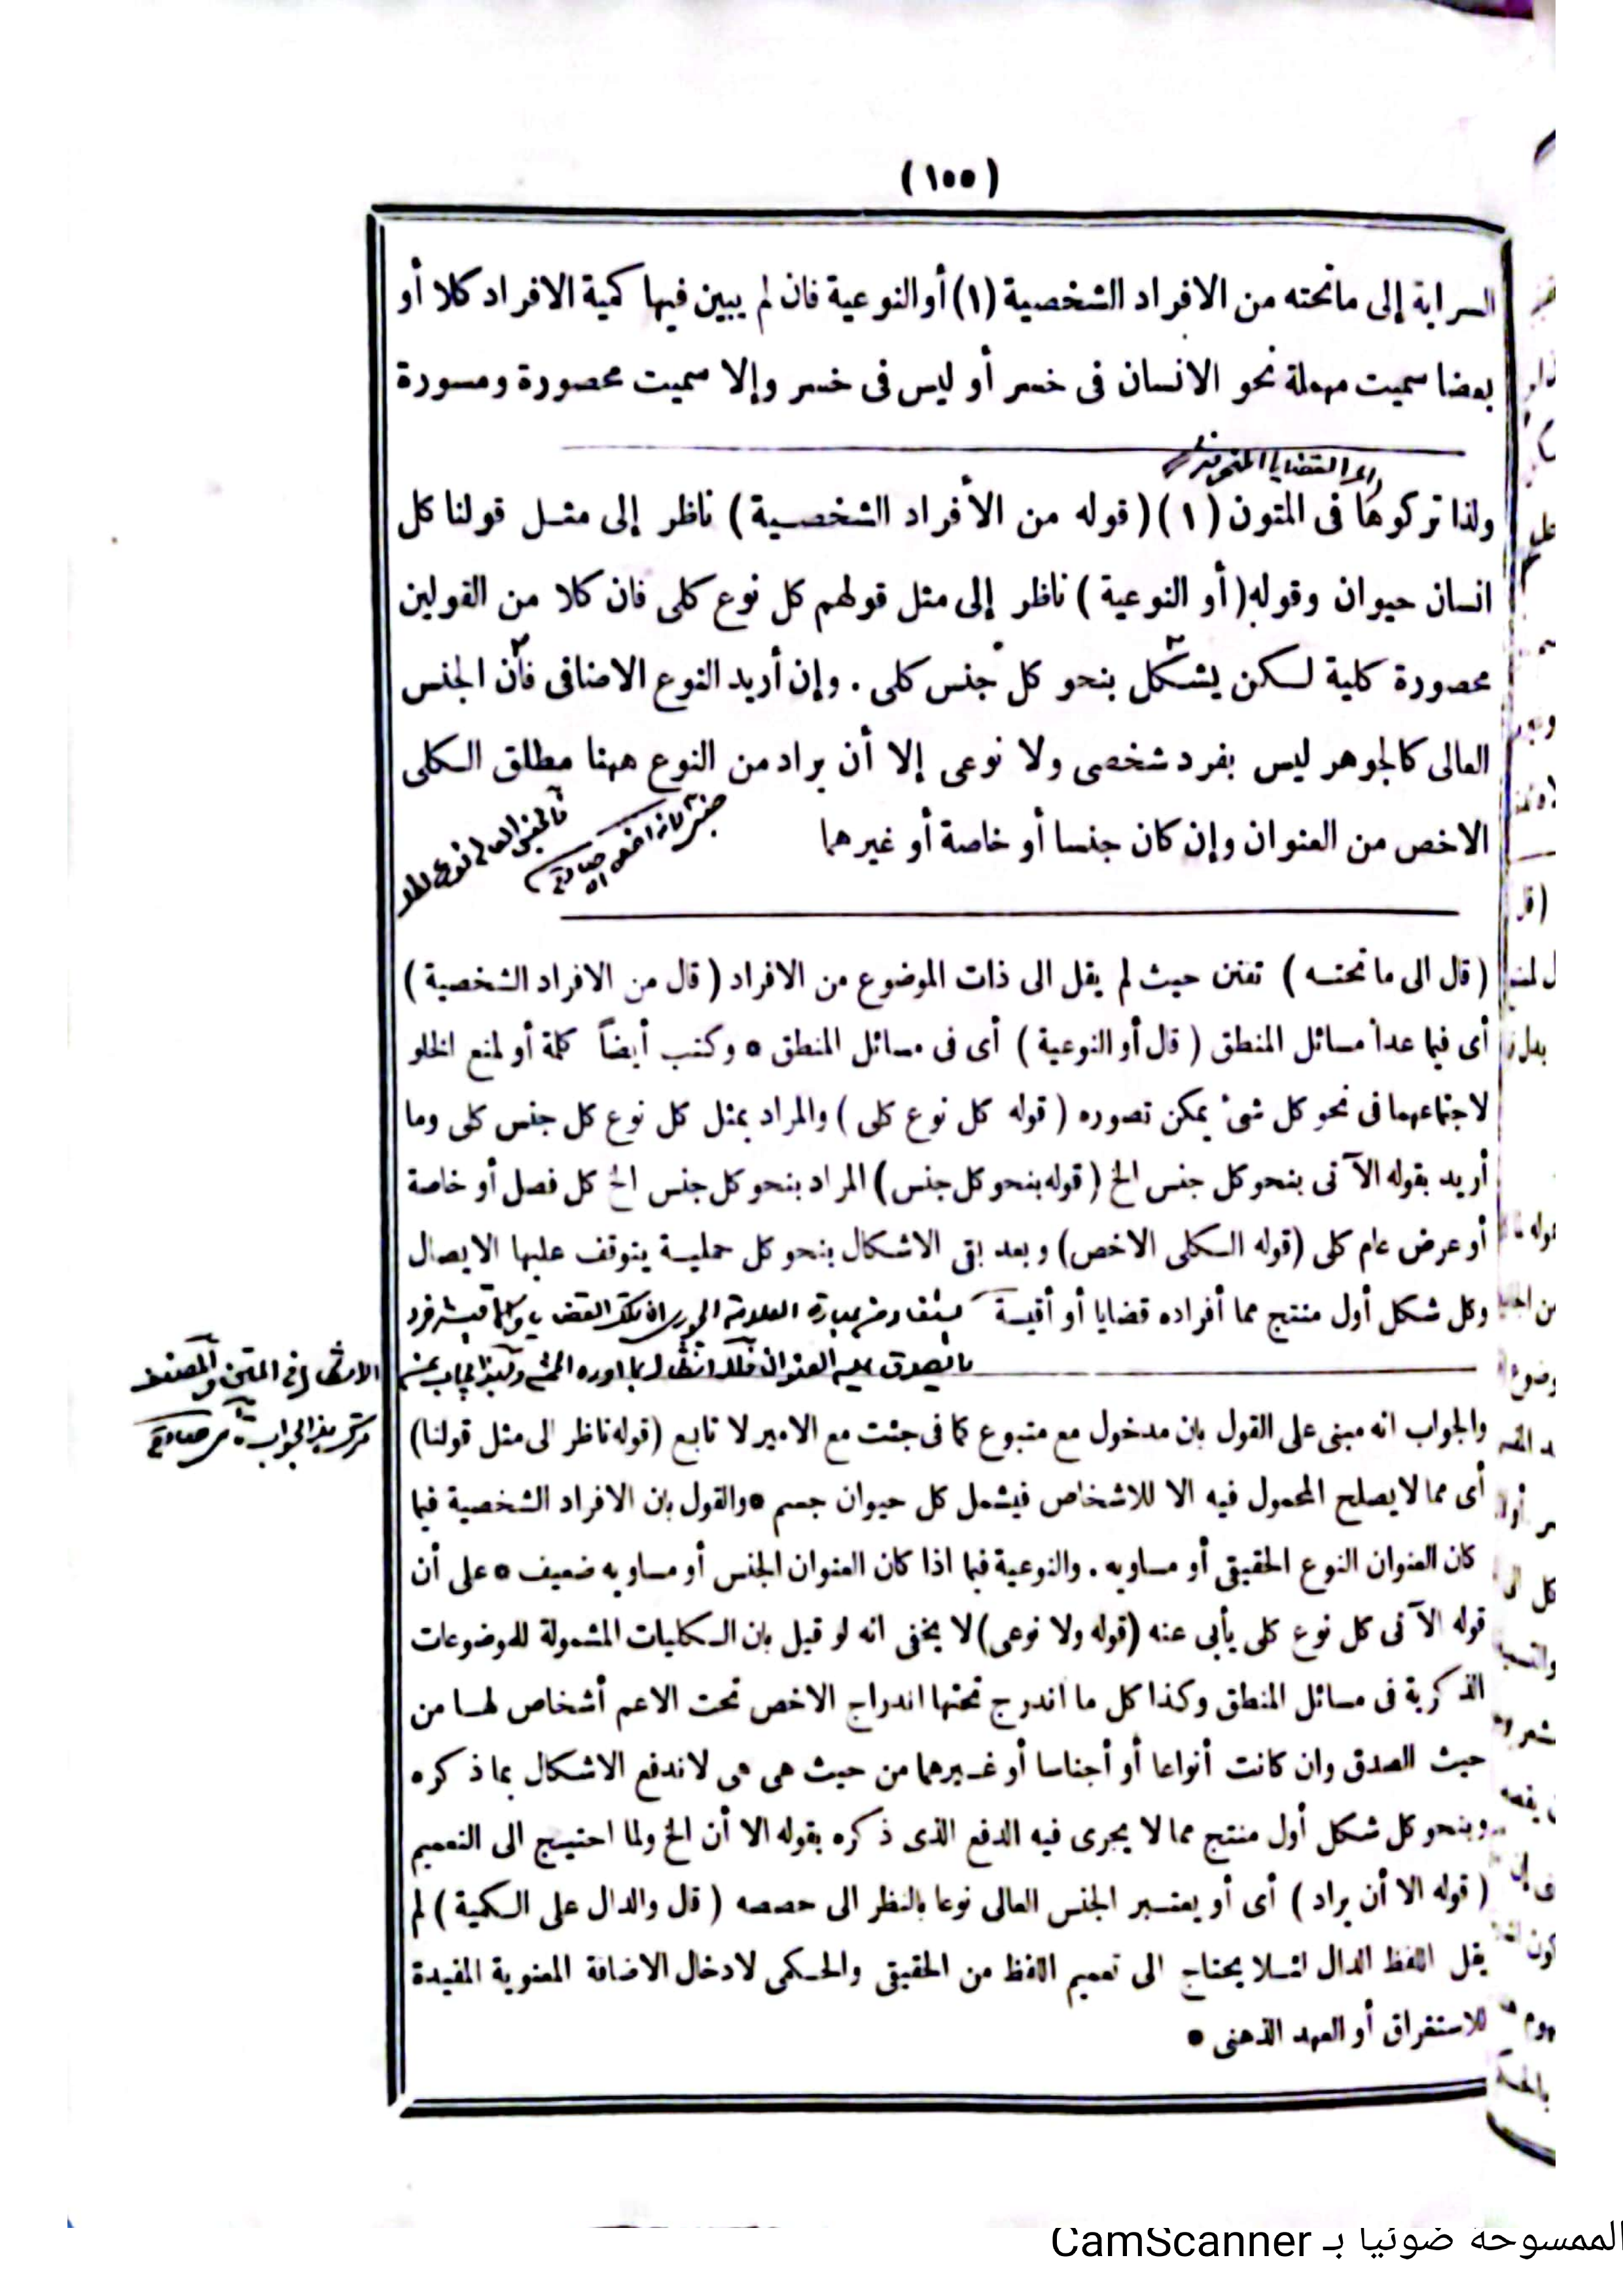 (١٥٥)
السراية إلى ماتحته من الافراد الشخصية (١) أو النوعية فان لم يبين فيها كمية الافراد كلا أو
بعضا سميت مهملة نحو الانسان فى خسر أو ليس فى خسر وإلا سميت محصورة ومسورة
ولذا تركوها فى المتون (١) (قوله من الأفراد الشخصية) ناظر إلى مثل قولنا كل
انسان حيوان وقوله (أو النوعية) ناظر إلى مثل قولهم كل نوع كلى فان كلا من القولين
محصورة كلية لكن يشكل بنحو كل جنس كلى . وإن أريد النوع الاضافى فأن الجنس
العالى كالجوهر ليس بفرد شخصى ولا نوعى إلا أن يراد من النوع ههنا مطلق الكلى
الاخص من العنوان وإن كان جنسا أو خاصة أو غيرهما
(قال الى ما تحته) تفنن حيث لم يقل الى ذات الموضوع من الافراد (قال من الافراد الشخصية)
أى فيما عدا مسائل المنطق (قال أو النوعية) أى فى مسائل المنطق • وكتب أيضاً كلمة أو لمنع الخلو
لاجتماعهما فى نحو كل شئ يمكن تصوره (قوله كل نوع كلى) والمراد بمثل كل نوع كل جنس كلى وما
أريد بقوله الآتى بنحو كل جنس الخ (قوله بنحو كل جنس) المراد بنحو كل جنس الخ كل فصل أو خاصة
أو عرض عام كلى (قوله الكلى الاخص) وبعد بقى الاشكال بنحو كل حملية يتوقف عليها الايصال
وكل شكل أول منتج مما أفراده قضايا أو أقيسة
والجواب انه مبنى على القول بان مدخول مع متبوع كما فى جئت مع الامير لا تابع (قوله ناظر الى مثل قولنا)
أى مما لا يصلح المحمول فيه الا للاشخاص فيشمل كل حيوان جسم • والقول بان الافراد الشخصية فيما
كان العنوان النوع الحقيقى أو مساويه . والنوعية فيما اذا كان العنوان الجنس أو مساويه ضعيف • على أن
قوله الآتى كل نوع كلى يأبى عنه (قوله ولا نوعى) لا يخفى انه لو قيل بان الكليات المشمولة للموضوعات
الذكرية فى مسائل المنطق وكذا كل ما اندرج تحتها اندراج الاخص تحت الاعم أشخاص لها من
حيث الصدق وان كانت أنواعا أو أجناسا أو غيرهما من حيث هى هى لاندفع الاشكال بما ذكره
وبنحو كل شكل أول منتج مما لا يجرى فيه الدفع الذى ذكره بقوله الا أن الخ ولما احتيج الى التعميم
(قوله الا أن يراد) أى أو يعتبر الجنس العالى نوعا بالنظر الى حصصه (قال والدال على الكمية) لم
يقل اللفظ الدال لئلا يحتاج الى تعميم اللفظ من الحقيقى والحكمى لادخال الاضافة المعنوية المفيدة
للاستغراق أو العهد الذهنى •
الممسوحة ضوئيا بـ CamScanner